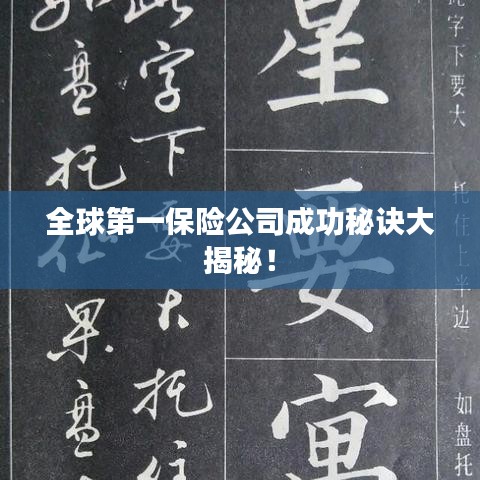 全球第一保险公司成功秘诀大
揭秘！
此字下要大
托住上半边
如盘托
星
要
寓
此字下要大托住
如盘托住果盘